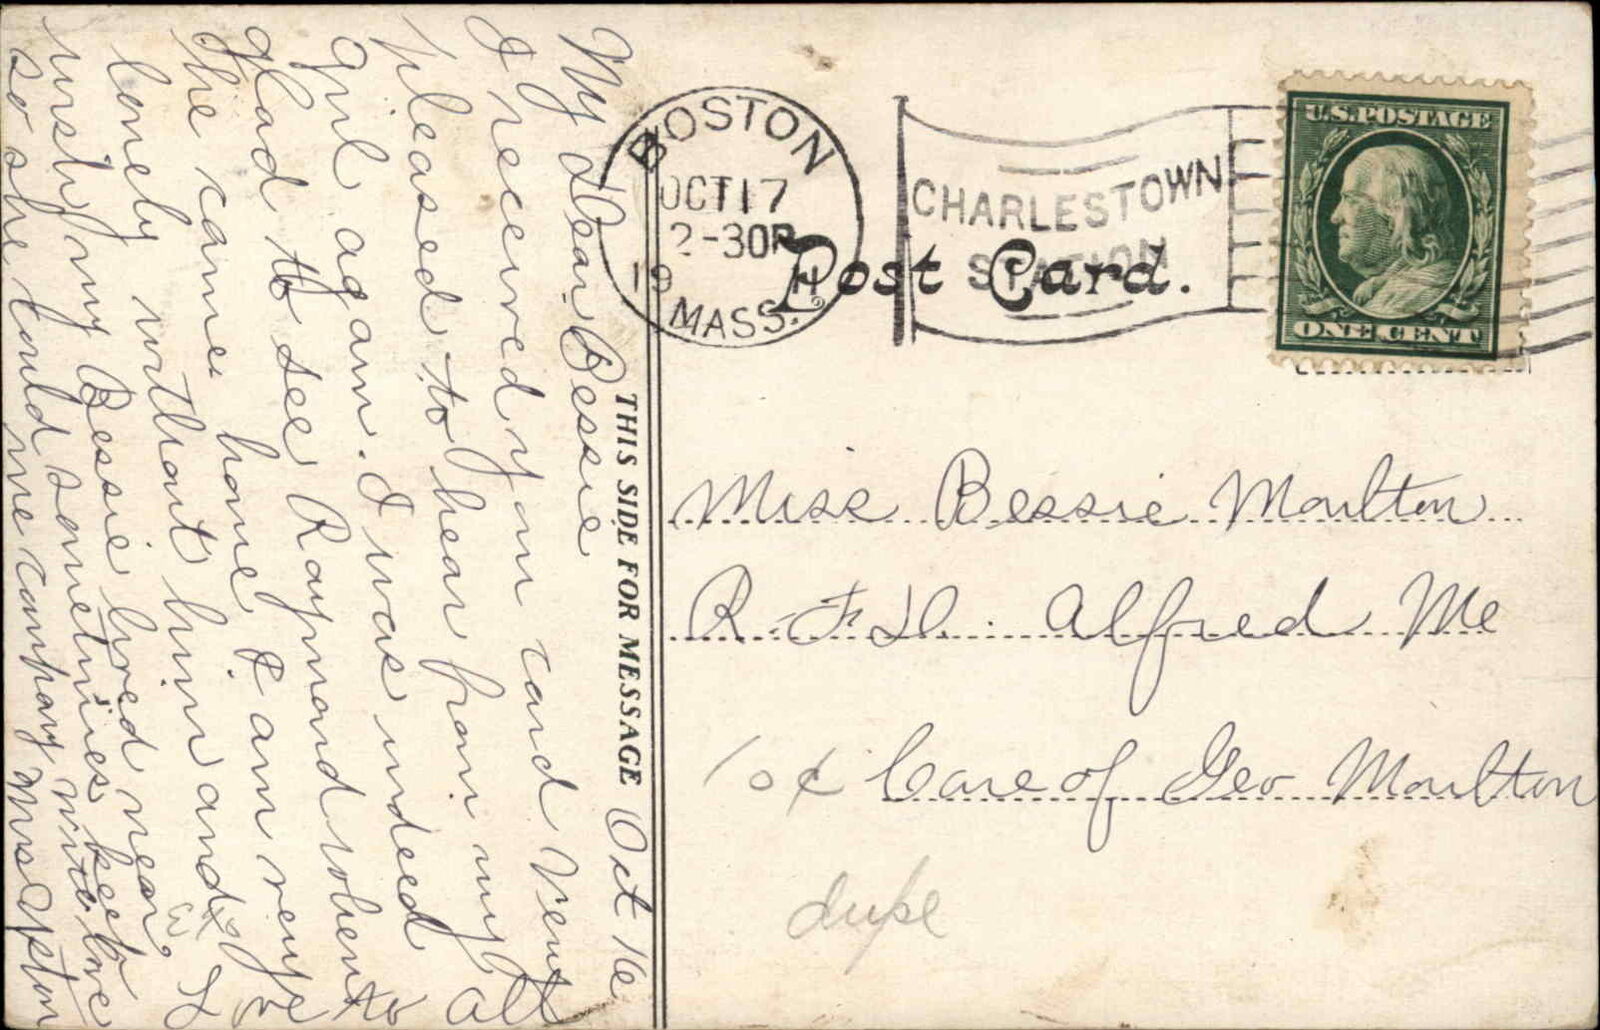 Oct 16
My Dear Bessie
I received your card very
pleased to hear from my All
Girl again. I was indeed
glad to see Raymond when to
he came home I am very
lonely without him and I
wish my Bessie lived near
so she could sometimes keep
me company write love
Mrs Upton
THIS SIDE FOR MESSAGE
BOSTON
OCT 17
2-30P
19 11
MASS.
CHARLESTOWN
STATION
Post Card.
U.S. POSTAGE
ONE CENT
Miss Bessie Moulton
R. F. D. Alfred Me
10¢ Care of Geo Moulton
dupe